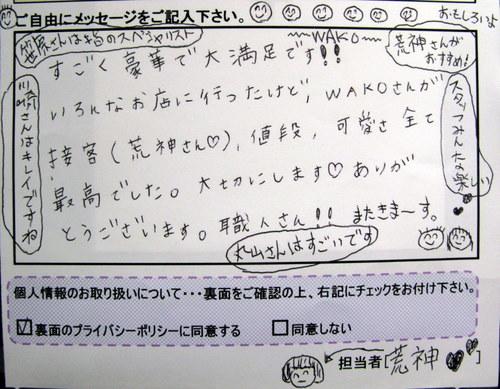 ご自由にメッセージをご記入下さい。
おもしろいよ
笹原さんは指のスペシャリスト
~~WAKO~~
荒神さんがおすすめ!
すごく豪華で大満足です!!
いろんなお店に行ったけど、WAKOさんが
接客(荒神さん♡)、値段、可愛さ全て
最高でした。大切にします♡ありが
とうございます。職人さん!!またきま〜す。
さんはキレイですね
スタッフみんな楽しい
丸山さんはすごいです
個人情報のお取り扱いについて・・・裏面をご確認の上、右記にチェックをお付け下さい。
☑裏面のプライバシーポリシーに同意する □同意しない
担当者[荒神♥♥]